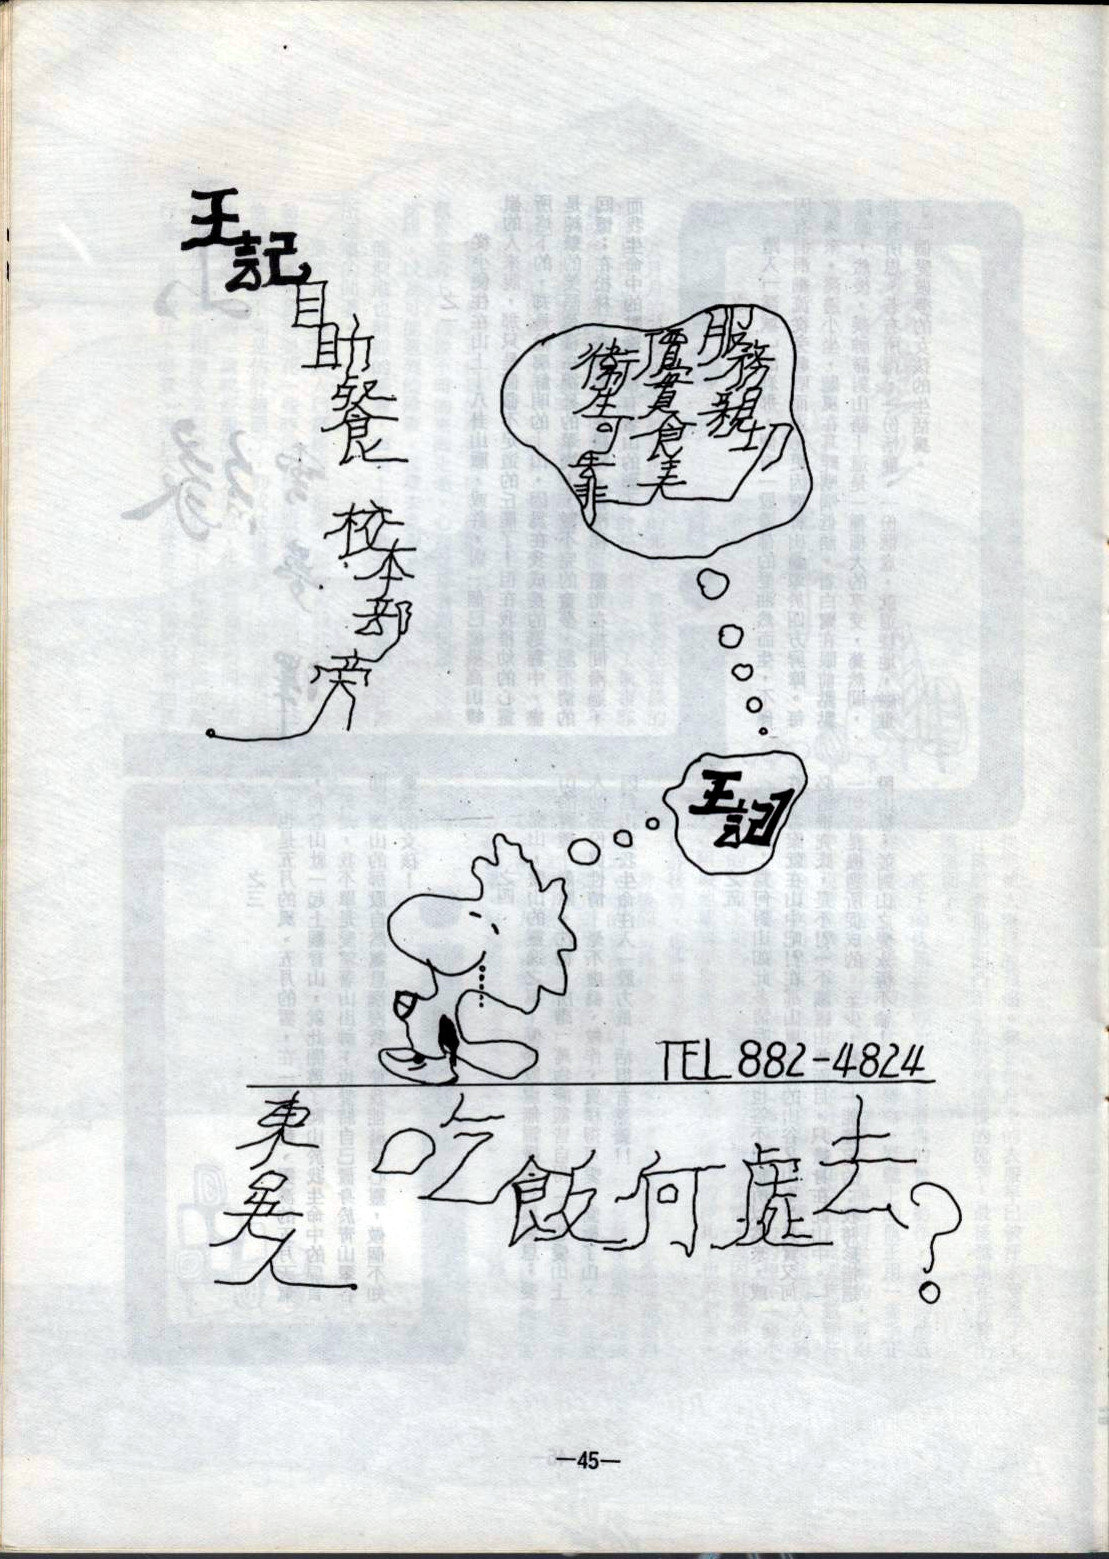 王記自助餐 校本部旁
服務親切
價實食美
衛生可靠
王記
TEL 882-4824
東吳人
吃飯何處去?
—45—